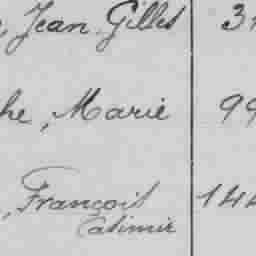 , Jean Gilles 3
he, Marie 99
, François 144
Casimir